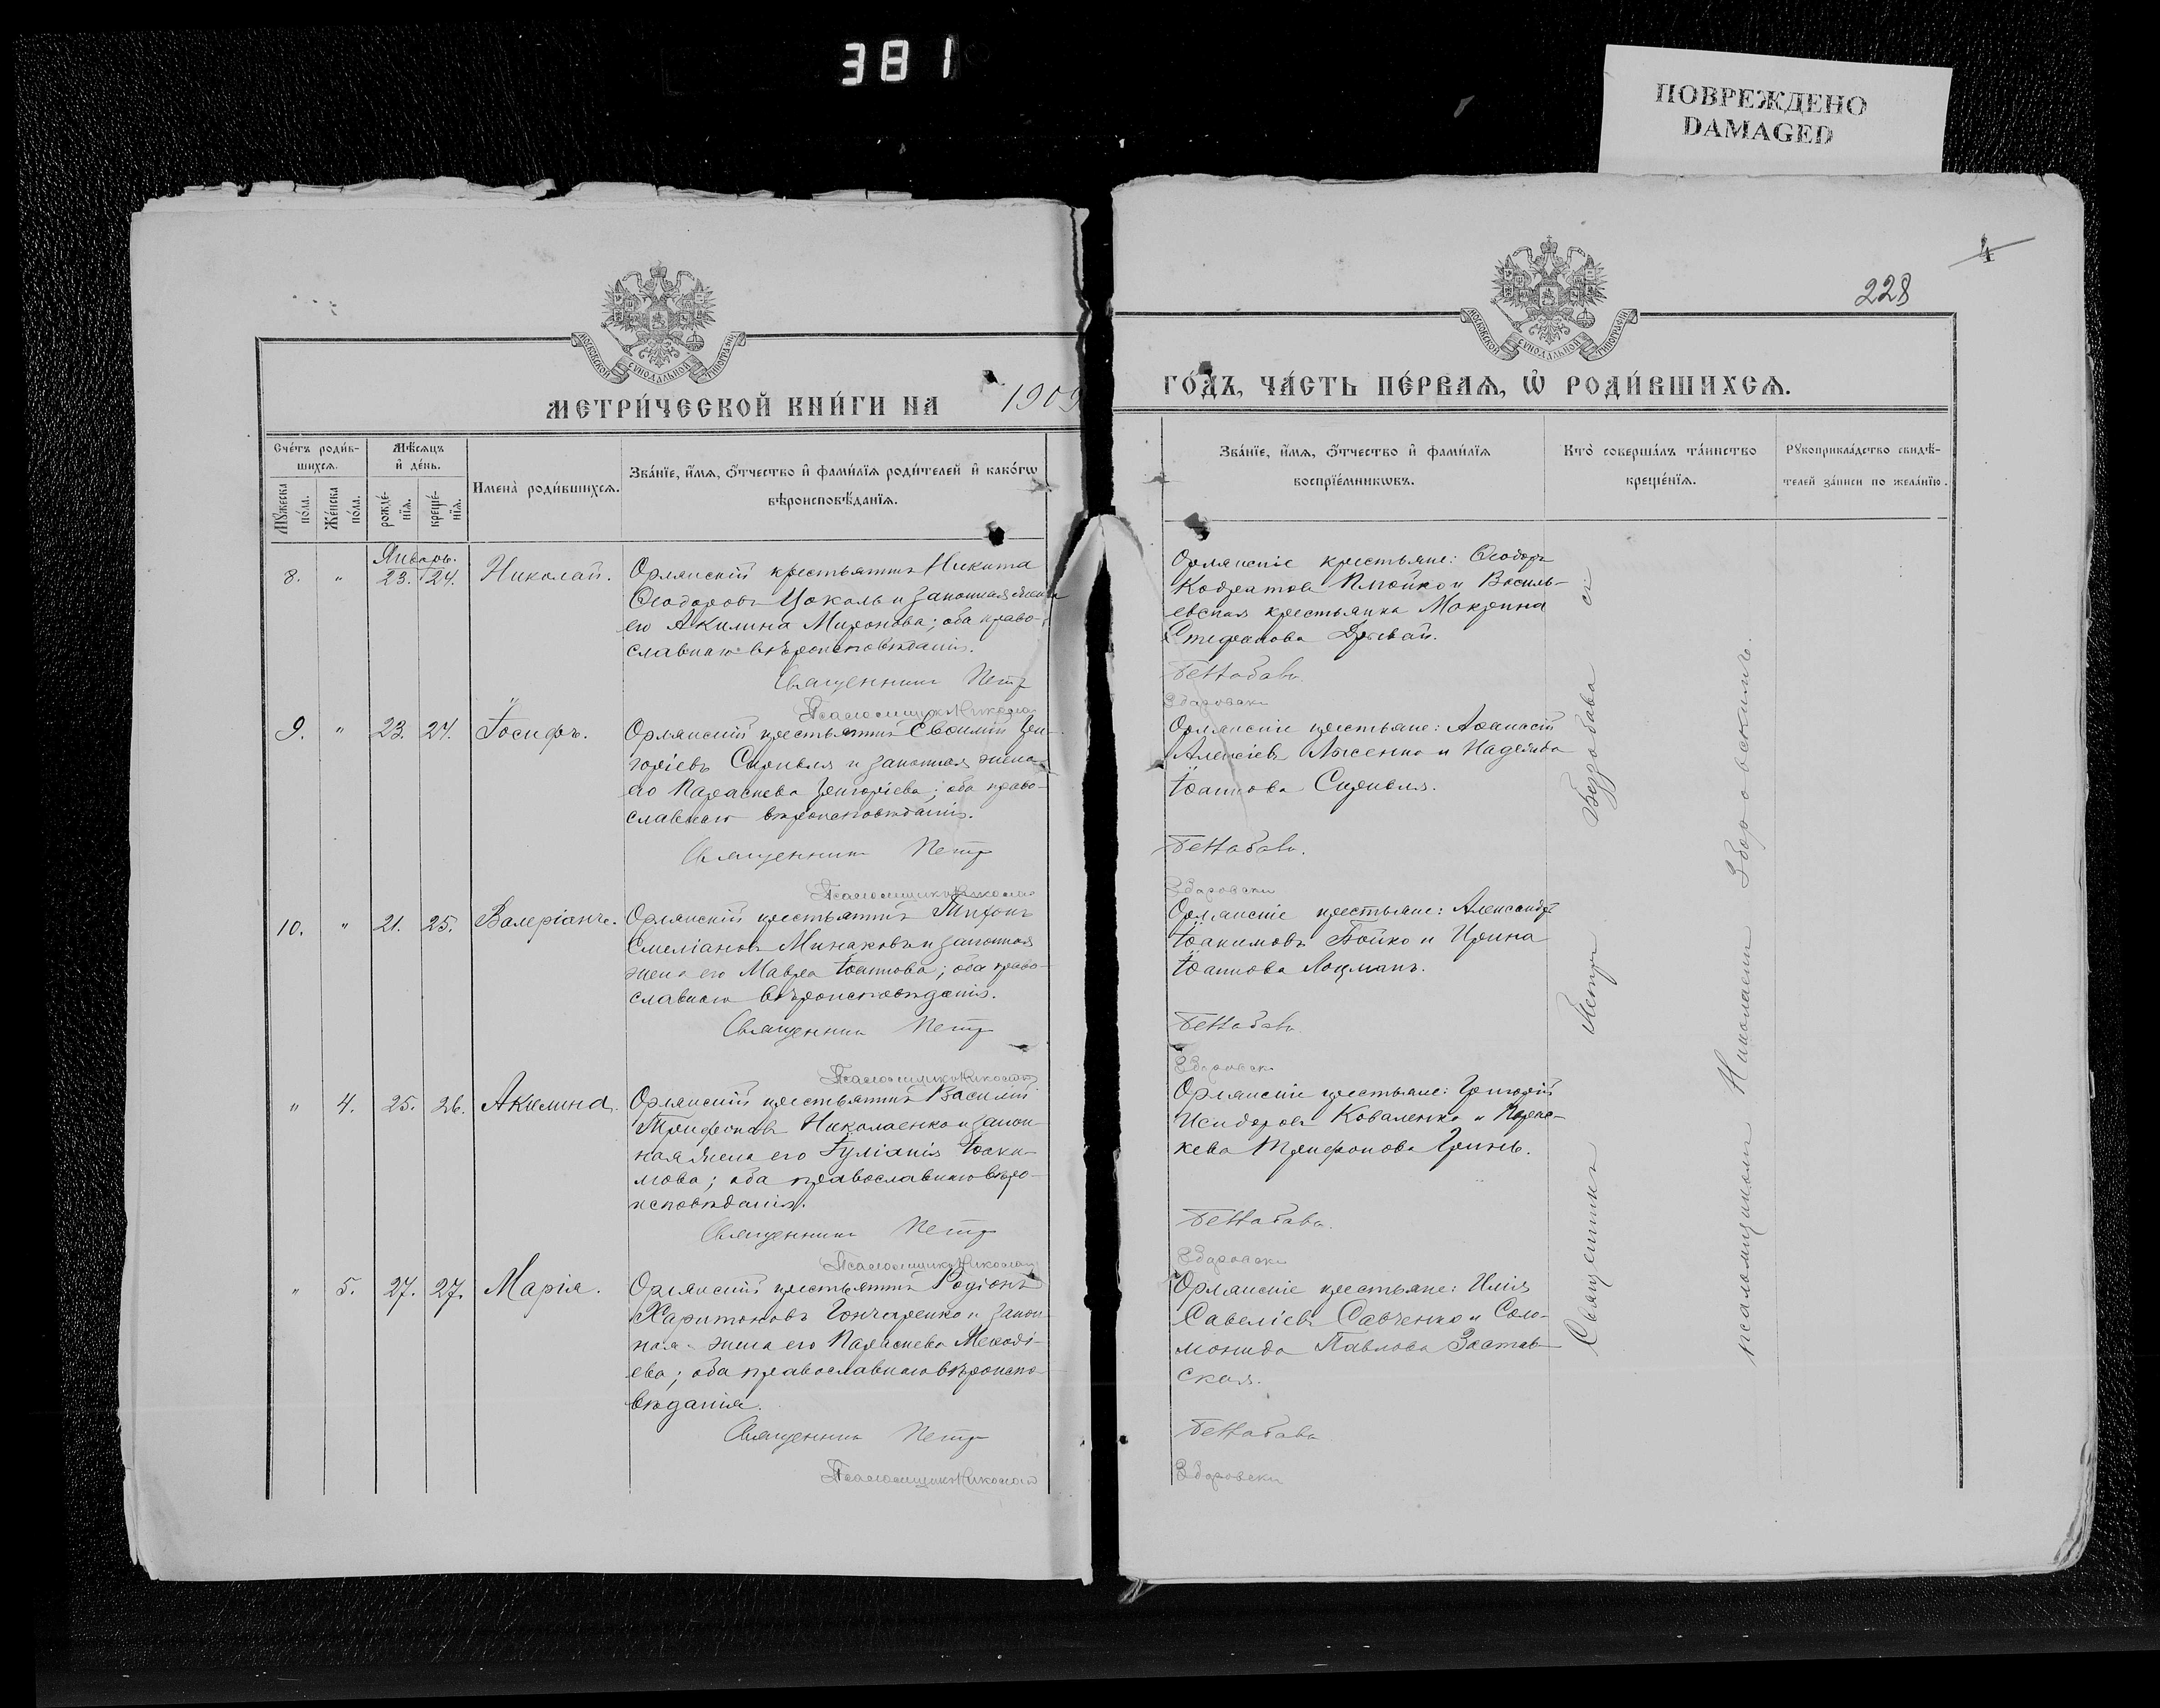 381
ПОВРЕЖДЕНО
DAMAGED
4
228
МОСКОВСКОЙ СУНОДАЛЬНОЙ ТИПОГРАФІИ
МОСКОВСКОЙ СУНОДАЛЬНОЙ ТИПОГРАФІИ
МЕТРИ́ЧЕСКОЙ КНИ́ГИ НА 1909
ГО́ДЪ, ЧА́СТЬ ПЕ́РВАѦ, Ѡ҆ РОДИ́ВШИХСѦ.
Сче́тъ роди́в-
шихсѧ.
Мꙋ́жеска по́ла.
Же́нска по́ла.
Мѣ́сѧцъ
и҆ де́нь.
рожде́-
нїѧ.
креще́-
нїѧ.
И҆мена̀ роди́вшихсѧ.
Зва́нїе, и҆́мѧ, ѻ҆́тчество и҆ фами́лїѧ роди́телей и҆ како́гѡ
вѣроисповѣ́данїѧ.
Зва́нїе, и҆́мѧ, ѻ҆́тчество и҆ фами́лїѧ
воспрїе́мникѡвъ.
Кто̀ соверша́лъ та́инство
креще́нїѧ.
Рꙋкоприкла́дство свидѣ́-
телей за́писи по жела́нїю.
Январь.
8. " 23. 24. Николай.
Орлянскій крестьянинъ Никита
Ѳеодоровъ Цоколь и законная жена
его Акилина Миронова; оба право-
славнаго вѣроисповѣданія.
Священникъ Петр
Псаломщикъ Никола
Орлянскіе крестьяне: Ѳеодоръ
Кодратовъ Плюйко и Василь-
евская крестьянка Макрина
Стефанова
9. " 23. 24. Іосифъ.
Орлянскій крестьянинъ Евѳимій Гри-
горіевъ Скрибля и законная жена
его Параскева Григоріева; оба право-
славнаго вѣроисповѣданія.
Священникъ Петр
Псаломщикъ Никола
Орлянскіе крестьяне: Аѳанасій
Алексіевъ Лысенко и Надежда
Іоаннова Скрибля.
10. " 21. 25. Валеріанъ.
Орлянскій крестьянинъ Тихонъ
Емеліановъ Минаковъ и законная
жена его Мавра Іоаннова; оба право-
славнаго вѣроисповѣданія.
Священникъ Петр
Псаломщикъ Никола
Орлянскіе крестьяне: Александръ
Іоакимовъ Бойко и Ирина
Іоаннова Лоцманъ.
" 4. 25. 26. Акилина.
Орлянскій крестьянинъ Василій
Трифоновъ Николаенко и закон-
ная жена его Іуліанія Іоаки-
мова; оба православнаго вѣро-
исповѣданія.
Священникъ Петр
Псаломщикъ Николай
Орлянскіе крестьяне: Григорій
Исидоровъ Коваленко и Парас-
кева Трифонова Гринь.
" 5. 27. 27. Марія.
Орлянскій крестьянинъ Родіонъ
Харитоновъ Гончаренко и закон-
ная жена его Параскева Меѳоді-
ева; оба православнаго вѣроиспо-
вѣданія.
Священникъ Петр
Псаломщикъ Николай
Орлянскіе крестьяне: Илія
Савеліевъ Савченко и Соло-
монида Павлова Застав-
ская.
Священникъ Петръ
псаломщикомъ Николаемъ